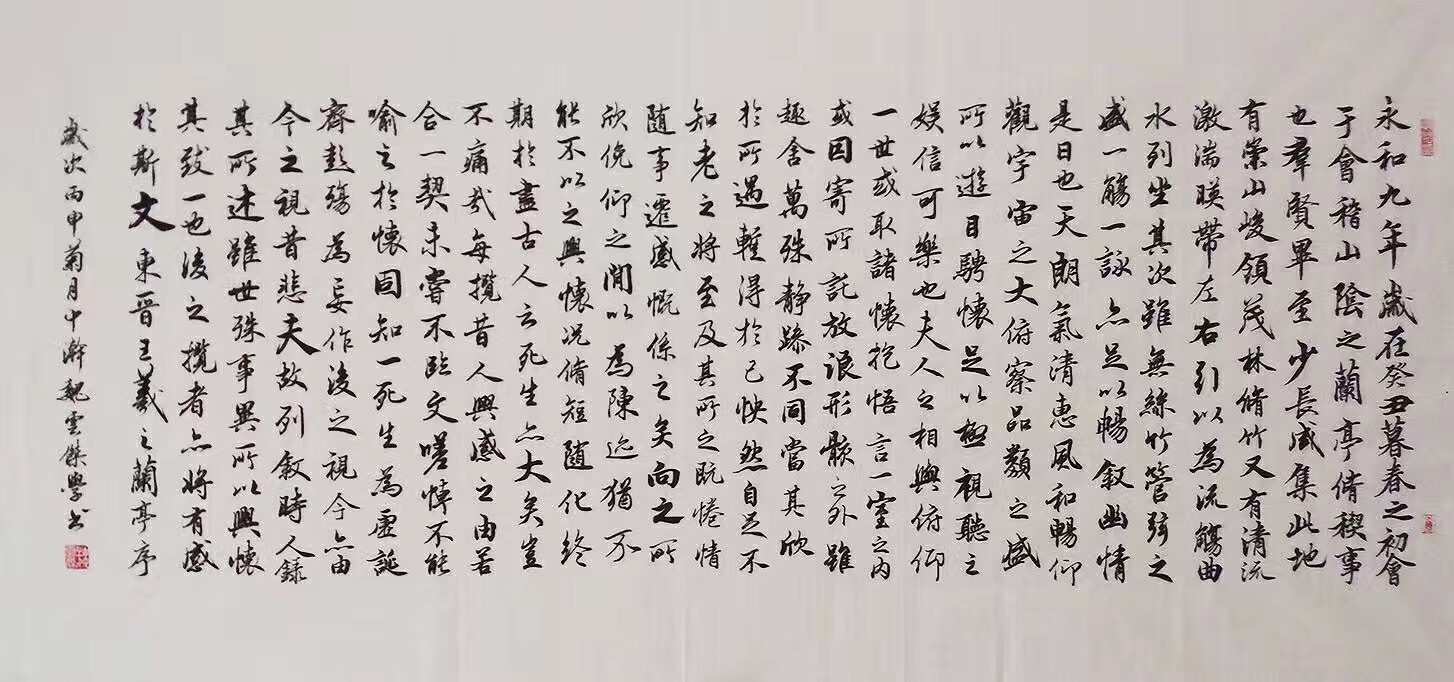 永和九年歲在癸丑暮春之初會
于會稽山陰之蘭亭脩稧事
也羣賢畢至少長咸集此地
有崇山峻領茂林脩竹又有清流
激湍暎帶左右引以為流觴曲
水列坐其次雖無絲竹管弦之
盛一觴一詠亦足以暢敘幽情
是日也天朗氣清惠風和暢仰
觀宇宙之大俯察品類之盛
所以遊目騁懷足以極視聽之
娛信可樂也夫人之相與俯仰
一世或取諸懷抱悟言一室之內
或因寄所託放浪形骸之外雖
趣舍萬殊静躁不同當其欣
於所遇暫得於己怏然自足不
知老之將至及其所之既惓情
隨事遷感慨係之矣向之所
欣俛仰之閒以為陳迹猶不
能不以之興懷況脩短隨化終
期於盡古人云死生亦大矣豈
不痛哉每攬昔人興感之由若
合一契未嘗不臨文嗟悼不能
喻之於懷固知一死生為虛誕
齊彭殤為妄作後之視今亦由
今之視昔悲夫故列敘時人錄
其所述雖世殊事異所以興懷
其致一也後之攬者亦將有感
於斯文 東晉王羲之蘭亭序
歲次丙申菊月中澣魏雲傑學书